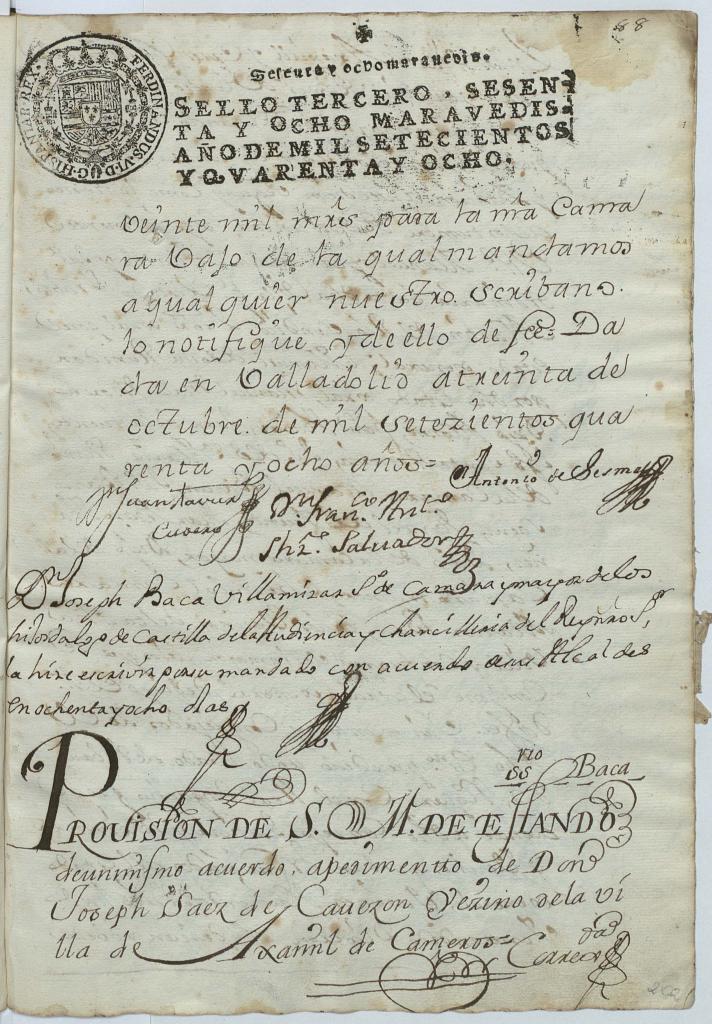 68
Sesenta y ocho maravedis.
SELLO TERCERO, SESEN-
TA Y OCHO MARAVEDIS.
AÑO DE MIL SETECIENTOS
Y QVARENTA Y OCHO.
FERDINANDUS VI D.G. HISPANIAR. REX
veinte mil mrs para la nra Cama
ra vajo de la qual mandamos
a qual quier nuestro scribano.
lo notifique y de ello de fee= Da
da en Valladolid a treinta de
octubre. de mil setezientos qua
renta y ocho años=
Antonio de Sesma
Juan
Cubero
Dn. Franco. Anto.
Shz. Salvador
Dn Joseph Baca Villamizar So. de Camara y mayor de los
hijosdalgo de Castilla de la Audiencia y Chancilleria del Rey nro Sr,
la hize escrivir por su mandado con acuerdo de sus Alcaldes
en ochenta y ocho ojas
srio Baca
PROUISION DE S. M. DE ESTANDO
de un mismo acuerdo. a pedimentto de Don
Joseph Saez de Cavezon Vezino de la vi
lla de Axamil de Cameros=
Correxda